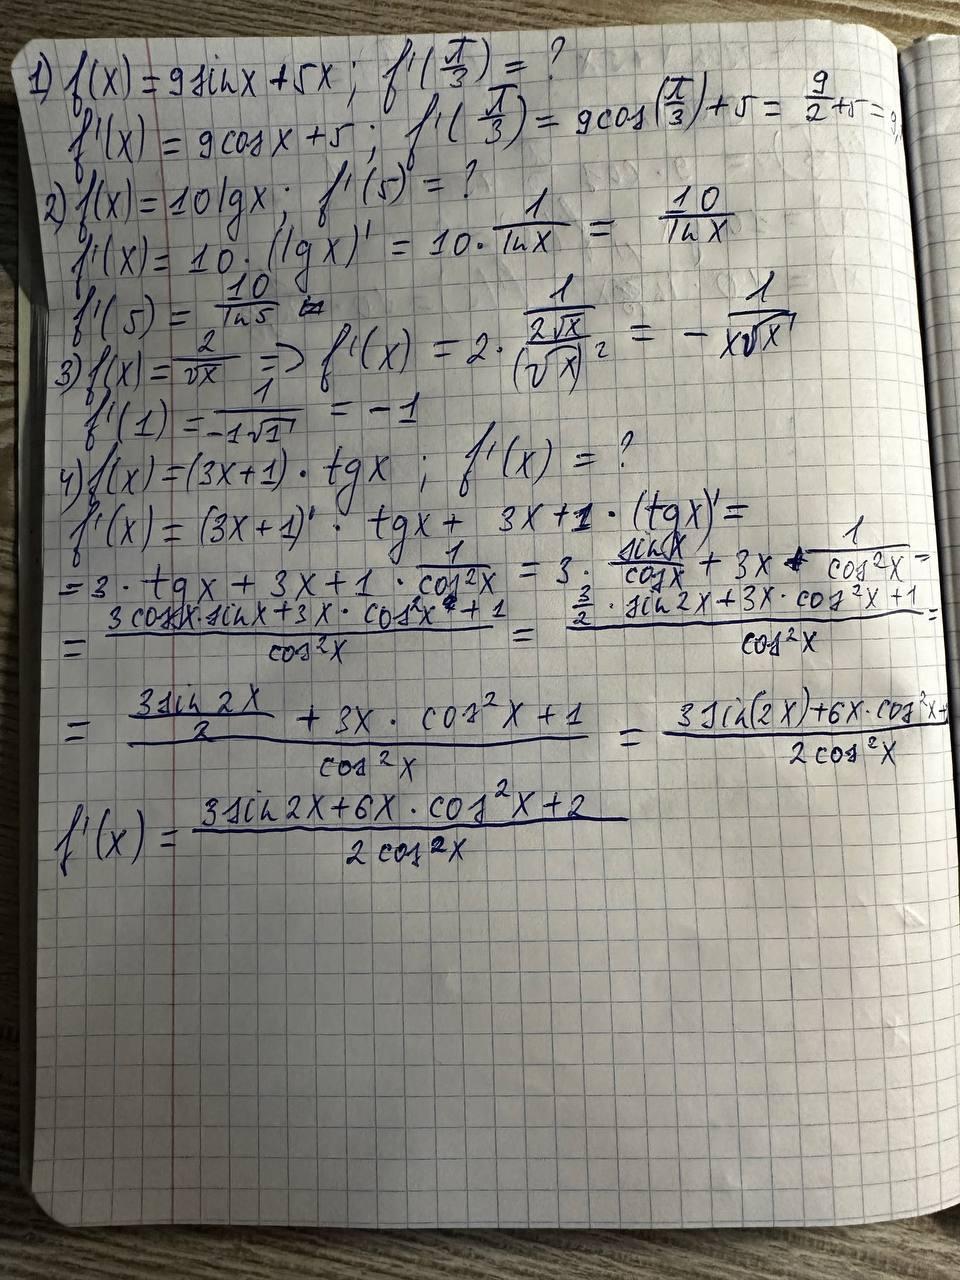 1) f(x) = 9sinx + 5x ; f'(π/3) = ?
f'(x) = 9cosx + 5 ; f'(π/3) = 9cos(π/3) + 5 = 9/2 + 5 = 9,
2) f(x) = 10lgx ; f'(5) = ?
f'(x) = 10 · (lgx)' = 10 · 1/lnx = 10/lnx
f'(5) = 10/ln5
3) f(x) = 2/√x => f'(x) = 2 · (1/(2√x))/(√x)² = - 1/(x√x)
f'(1) = 1/(-1√1) = -1
4) f(x) = (3x+1) · tgx ; f'(x) = ?
f'(x) = (3x+1)' · tgx + 3x+1 · (tgx)' =
= 3 · tgx + 3x+1 · 1/cos²x = 3 · sinx/cosx + 3x + 1/cos²x =
= (3cosx·sinx + 3x · cos²x + 1)/cos²x = (3/2 · sin2x + 3x · cos²x + 1)/cos²x =
= (3sin2x/2 + 3x · cos²x + 1)/cos²x = (3sin(2x) + 6x · cos²x +)/2cos²x
f'(x) = (3sin2x + 6x · cos²x + 2)/2cos²x